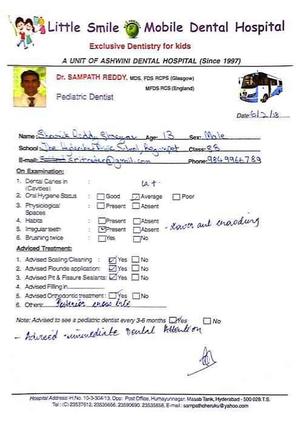 Little Smile Mobile Dental Hospital
Exclusive Dentistry for kids
A UNIT OF ASHWINI DENTAL HOSPITAL (Since 1997)
Dr. SAMPATH REDDY, MDS, FDS RCPS (Glasgow)
MFDS RCS (England)
Pediatric Dentist
Date: 6/2/18
Name: Reddy Age: 13 Sex: Male
School: The School Class: 8B
E-mail: @gmail.com Phone:
On Examination:
1. Dental Caries in (Cavities)
2. Oral Hygiene Status : Good Average Poor
3. Physiological Spaces : Present Absent
4. Habits : Present Absent
5. Irregular teeth : Present Absent - lower ant crowding
6. Brushing twice : Yes No
Adviced Treatment:
1. Advised Scaling/Cleaning : Yes No
2. Advised Flouride application: Yes No
3. Advised Pit & Fissure Sealants: Yes No
4. Advised Filling in
5. Advised Orthodontic treatment : Yes No
6. Others: cross bite
Note: Advised to see a pediatric dentist every 3-6 months Yes No
- Adviced - immediate Dental Attention
Hospital Address: H.No. 10-3-304/13, Opp: Post Office, Humayunnagar, Masab Tank, Hyderabad - 500 028.T.S.
Tel: (C) 23537612, 23535656, 23590690, 23535858, E-mail : sampathcheruku@yahoo.com